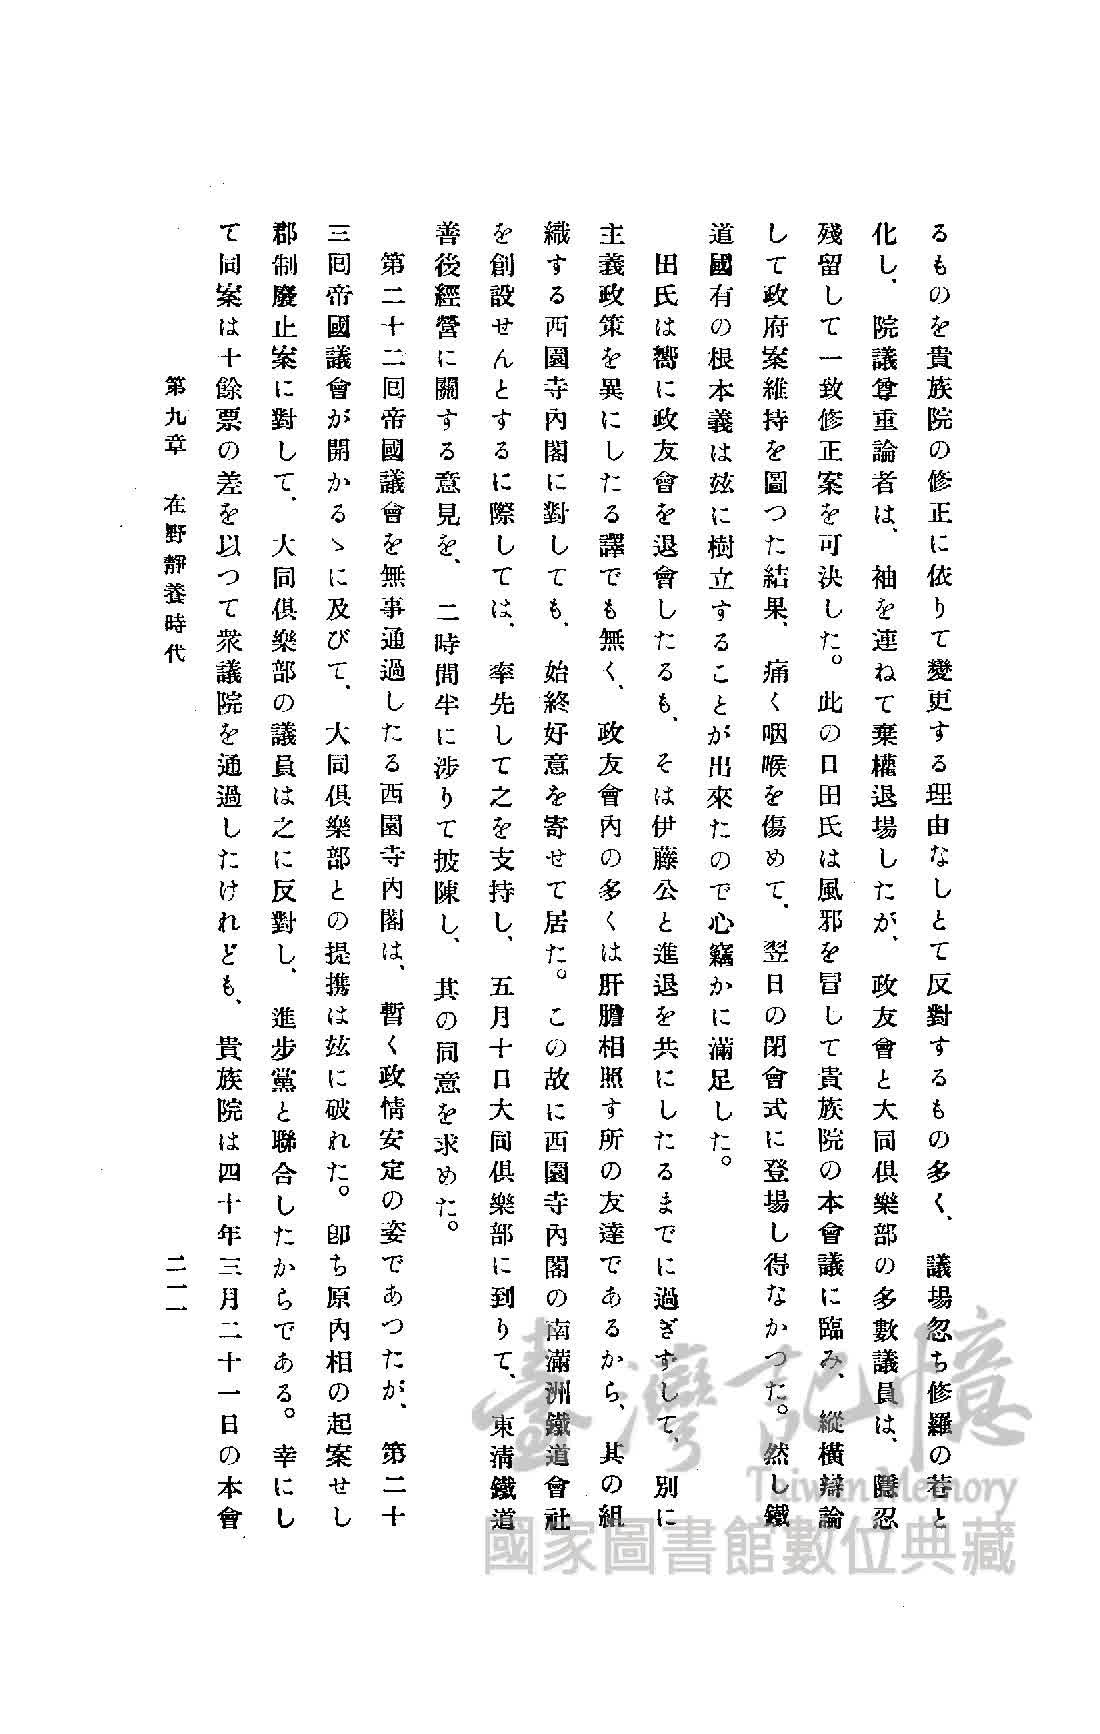 るものを貴族院の修正に依りて變更する理由なしとて反對するもの多く、議場忽ち修羅の巷と
化し、院議尊重論者は、袖を連ねて棄權退場したが、政友會と大同倶樂部の多數議員は、隱忍
殘留して一致修正案を可決した。此の日田氏は風邪を冒して貴族院の本會議に臨み、縱横辯論
して政府案維持を圖つた結果、痛く咽喉を傷めて、翌日の閉會式に登場し得なかつた。然し鐵
道國有の根本義は玆に樹立することが出來たので心竊かに滿足した。
田氏は嚮に政友會を退會したるも、そは伊藤公と進退を共にしたるまでに過ぎずして、別に
主義政策を異にしたる譯でも無く、政友會內の多くは肝膽相照す所の友達であるから、其の組
織する西園寺內閣に對しても、始終好意を寄せて居た。この故に西園寺內閣の南滿洲鐵道會社
を創設せんとするに際しては、率先して之を支持し、五月十日大同倶樂部に到りて、東淸鐵道
善後經營に關する意見を、二時間半に涉りて披陳し、其の同意を求めた。
第二十二囘帝國議會を無事通過したる西園寺內閣は、暫く政情安定の姿であつたが、第二十
三囘帝國議會が開かるゝに及びて、大同倶樂部との提携は玆に破れた。卽ち原內相の起案せし
郡制廢止案に對して、大同倶樂部の議員は之に反對し、進步黨と聯合したからである。幸にし
て同案は十餘票の差を以つて衆議院を通過したけれども、貴族院は四十年三月二十一日の本會
第九章 在野靜養時代
二一一
臺灣記憶
Taiwan Memory
國家圖書館數位典藏